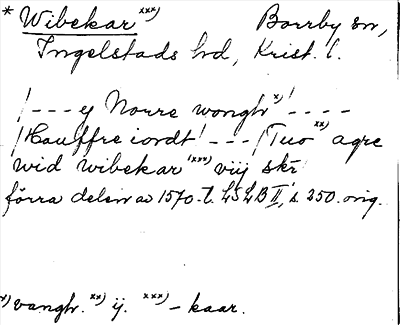 * Wibekar xxx) Borrby sn,
Ingelstads hd, Krist. l.
/--- ej Norre wongh x)/ ----
/Hauffre iordt/ --- /Tuo xx) agre
wid wibekar xxx) viij skr
förra delen av 1570-t. LSLB II, s. 250. orig.
x) vangh. xx) ij. xxx) -kaar.